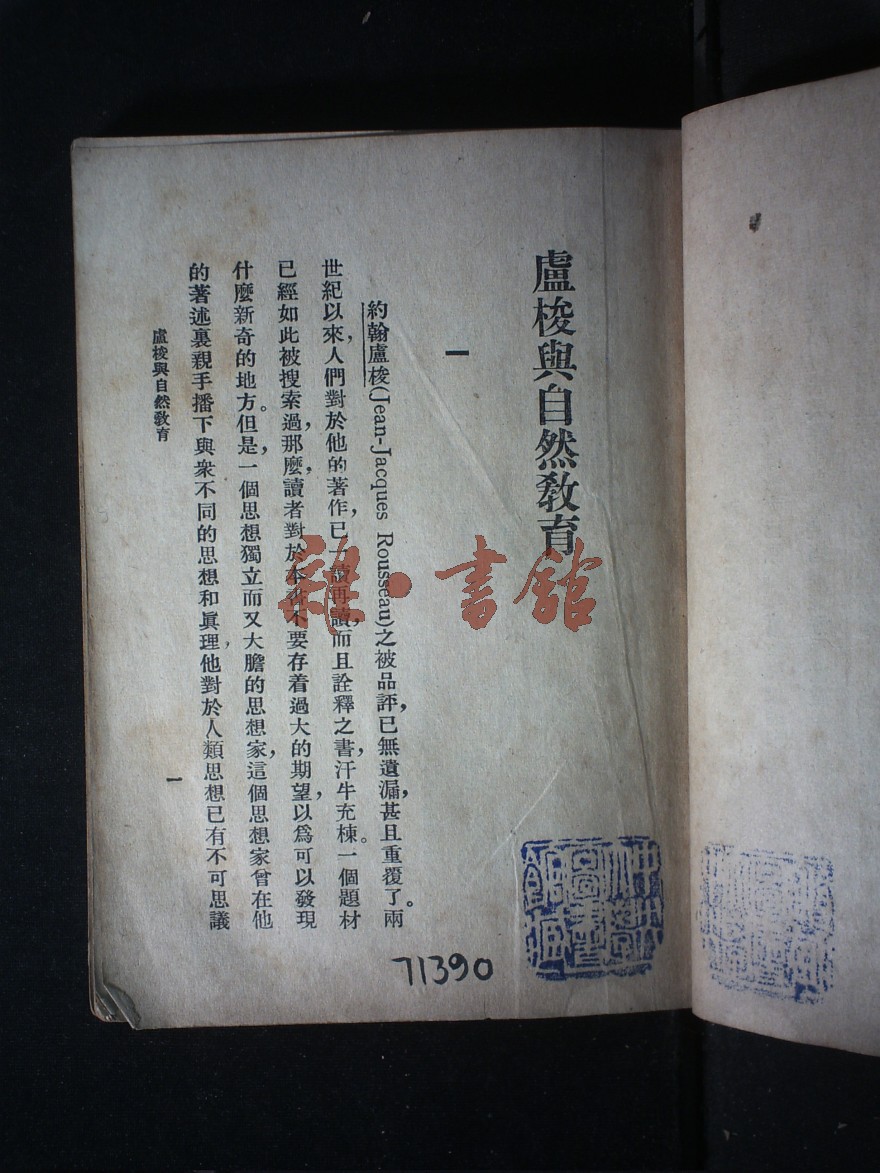 盧梭與自然敎育
一
約翰盧梭(Jean-Jacques Rousseau)之被品評，已無遺漏，甚且重覆了。兩
世紀以來，人們對於他的著作，已一讀再讀，而且詮釋之書，汗牛充棟。一個題材
已經如此被搜索過，那麼，讀者對於本書不要存着過大的期望，以爲可以發現
什麼新奇的地方。但是，一個思想獨立而又大膽的思想家，這個思想家曾在他
的著述裏親手播下與衆不同的思想和眞理，他對於人類思想已有不可思議
盧梭與自然敎育
一
雜·書館
71390